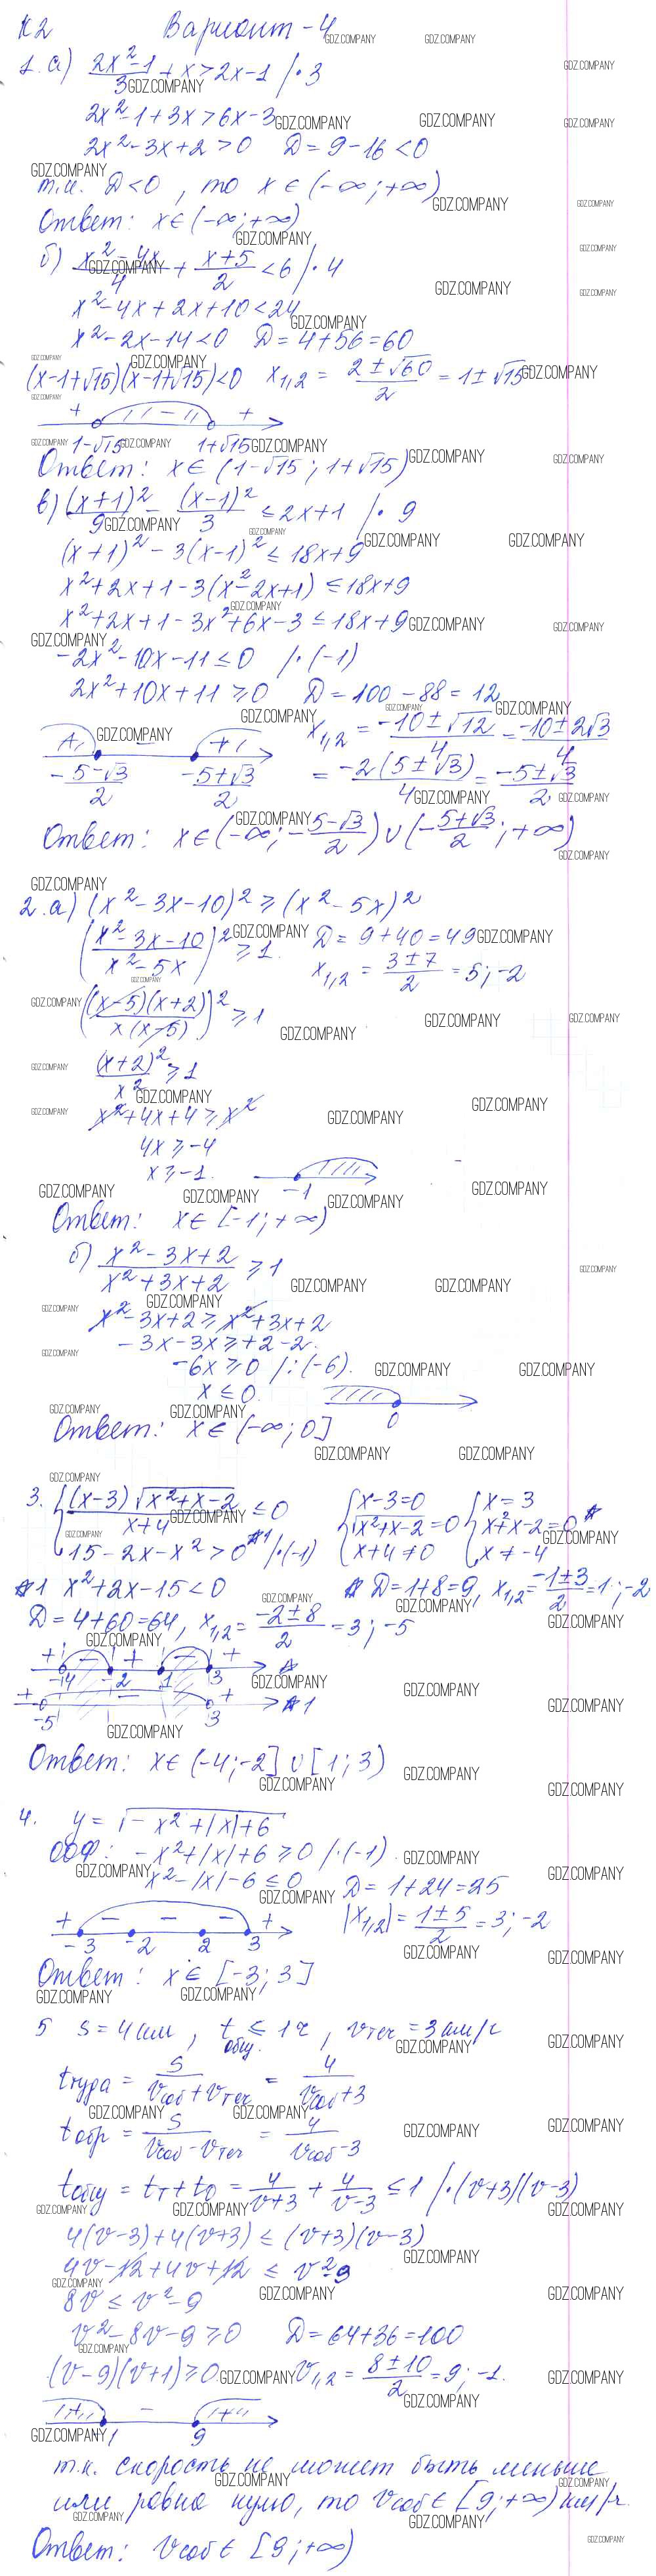 К2 Вариант-4
1. а) (2x²-1)/3 + x > 2x-1 |·3
2x²-1+3x>6x-3
2x²-3x+2>0 D=9-16<0
т.к. D<0, то x∈(-∞;+∞)
Ответ: x∈(-∞;+∞)
б) (x²-4x)/4 + (x+5)/2 <6 |·4
x²-4x+2x+10<24
x²-2x-14<0 D=4+56=60
(x-1+√15)(x-1+√15)<0 x₁,₂ = (2±√60)/2 = 1±√15
+ - +
1-√15 1+√15
Ответ: x∈(1-√15; 1+√15)
в) (x+1)²/9 - (x-1)²/3 ≤2x+1 |·9
(x+1)²-3(x-1)² ≤18x+9
x²+2x+1-3(x²-2x+1) ≤18x+9
x²+2x+1-3x²+6x-3 ≤18x+9
-2x²-10x-11≤0 |·(-1)
2x²+10x+11≥0 D=100-88=12
x₁,₂ = (-10±√12)/4 = (-10±2√3)/4
= -2(5±√3)/4 = (-5±√3)/2
-(5-√3)/2 (-5+√3)/2
Ответ: x∈(-∞; -(5-√3)/2)∪(-(5+√3)/2; +∞)
2. а) (x²-3x-10)²≥(x²-5x)²
((x²-3x-10)/(x²-5x))² ≥1. D=9+40=49
x₁,₂ = (3±7)/2 = 5; -2
((x-5)(x+2)/(x(x-5)))² ≥1
(x+2)²/x² ≥1
x²+4x+4≥x²
4x≥-4
x≥-1.
-1
Ответ: x∈[-1;+∞)
б) (x²-3x+2)/(x²+3x+2) ≥1
x²-3x+2≥x²+3x+2
-3x-3x≥+2-2.
-6x≥0 |:(-6).
x≤0.
0
Ответ: x∈(-∞;0]
3. {(x-3)√(x²+x-2)/(x+4) ≤0 {x-3=0 {x=3
√(x²+x-2)=0 x²+x-2=0*
15-2x-x²>0 *1 |·(-1) x+4≠0 x≠-4
*1 x²+2x-15<0 * D=1+8=9, x₁,₂=(-1±3)/2=1;-2
D=4+60=64, x₁,₂= (-2±8)/2 =3;-5
+ - + - +
-4 -2 1 3 *
+ - +
-5 3 *1
Ответ: x∈(-4;-2]∪[1;3)
4. y=√(-x²+|x|+6)
ООФ: -x²+|x|+6≥0 |·(-1).
x²-|x|-6≤0 D=1+24=25
|x₁,₂| = (1±5)/2 = 3; -2
+ - - - +
-3 -2 2 3
Ответ: x∈[-3;3]
5 S=4км, tобщ. ≤1ч, vтеч=3км/ч
tтуда = S/(vсоб+vтеч) = 4/(vсоб+3)
tобр = S/(vсоб-vтеч) = 4/(vсоб-3)
tобщ = tт+t0 = 4/(v+3) + 4/(v-3) ≤1 |·(v+3)(v-3)
4(v-3)+4(v+3) ≤ (v+3)(v-3)
4v-12+4v+12 ≤ v²-9
8v ≤ v²-9
v²-8v-9≥0 D=64+36=100
(v-9)(v+1)≥0 v₁,₂ = (8±10)/2 = 9; -1.
-1 9
т.к. скорость не может быть меньше
или равна нулю, то vсоб∈[9;+∞)км/ч.
Ответ: vсоб∈[9;+∞)
GDZ.COMPANY